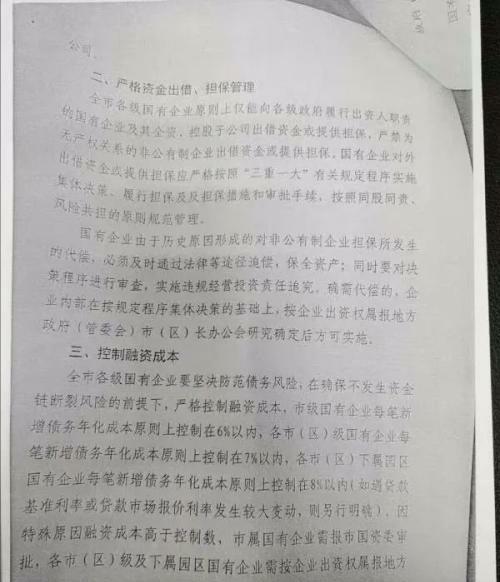 公司。
二、严格资金出借、担保管理
全市各级国有企业原则上仅能向各级政府履行出资人职责
的国有企业及其全资、控股子公司出借资金或提供担保，严禁为
无产权关系的非公有制企业出借资金或提供担保。国有企业对外
出借资金或提供担保应严格按照“三重一大”有关规定程序实施
集体决策、履行担保及反担保措施和审批手续，按照同股同责、
风险共担的原则规范管理。
国有企业由于历史原因形成的对非公有制企业担保所发生
的代偿，必须及时通过法律等途径追偿，保全资产；同时要对决
策程序进行审查，实施违规经营投资责任追究。确需代偿的，企
业内部在按规定程序集体决策的基础上，按企业出资权属报地方
政府（管委会）市（区）长办公会研究确定后方可实施。
三、控制融资成本
全市各级国有企业要坚决防范债务风险，在确保不发生资金
链断裂风险的前提下，严格控制融资成本，市级国有企业每笔新
增债务年化成本原则上控制在6%以内，各市（区）级国有企业每
笔新增债务年化成本原则上控制在7%以内，各市（区）下属园区
国有企业每笔新增债务年化成本原则上控制在8%以内（如遇贷款
基准利率或贷款市场报价利率发生较大变动，则另行明确）。因
特殊原因融资成本高于控制数，市属国有企业需报市国资委审
批，各市（区）级及下属园区国有企业需按企业出资权属报地方